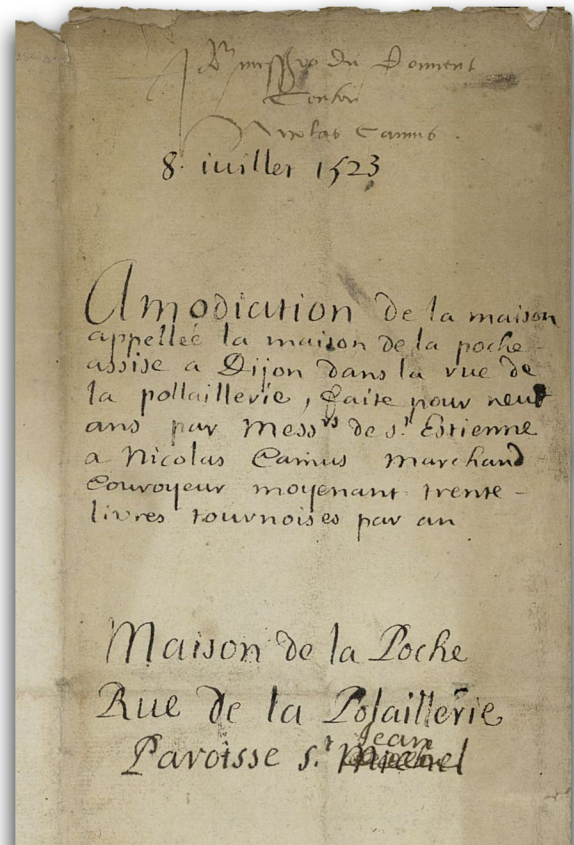 du
Contre
Nicolas Camus.
8. iuillet 1523
Amodiation de la maison
appelleé la maison de la poche
assise a Dijon dans la rue de
la pollaillerie, faite pour neuf
ans par Mess.rs de s.t Estienne
a Nicolas Camus marchand
Couroyeur moyenant trente-
livres tournoises par an
Maison de la Poche
Rue de la Polaillerie
Jean
Paroisse s.t Michel